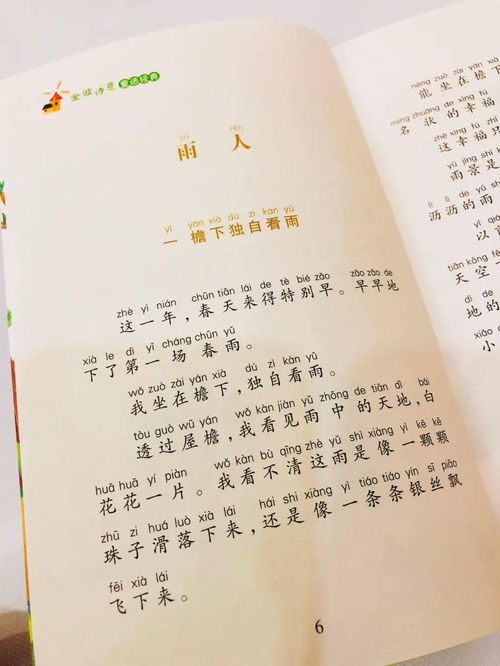 金波诗意童话经典
yǔ rén
雨人
yī yán xià dú zì kàn yǔ
一 檐下独自看雨
zhè yì nián chūn tiān lái de tè bié zǎo zǎo zǎo de
这一年，春天来得特别早。早早地
xià le dì yī cháng chūn yǔ
下了第一场春雨。
wǒ zuò zài yán xià dú zì kàn yǔ
我坐在檐下，独自看雨。
tòu guò wū yán wǒ kàn jiàn yǔ zhōng de tiān dì bái
透过屋檐，我看见雨中的天地，白
huā huā yí piàn wǒ kàn bù qīng zhè yǔ shì xiàng yì kē kē
花花一片。我看不清这雨是像一颗颗
zhū zi huá luò xià lái hái shi xiàng yì tiáo tiáo yín sī piāo
珠子滑落下来，还是像一条条银丝飘
fēi xià lái
飞下来。
6
néng zuò zài yán
能坐在檐下
míng zhuàng de xìng fú
名状的幸福
zhè xìng fú
这幸福
yǔ jǐng shì
雨景是
lì lì de yǔ
沥沥的雨
yǐ
以
tiān kōng
天空一
de
地的
xiǎo
小